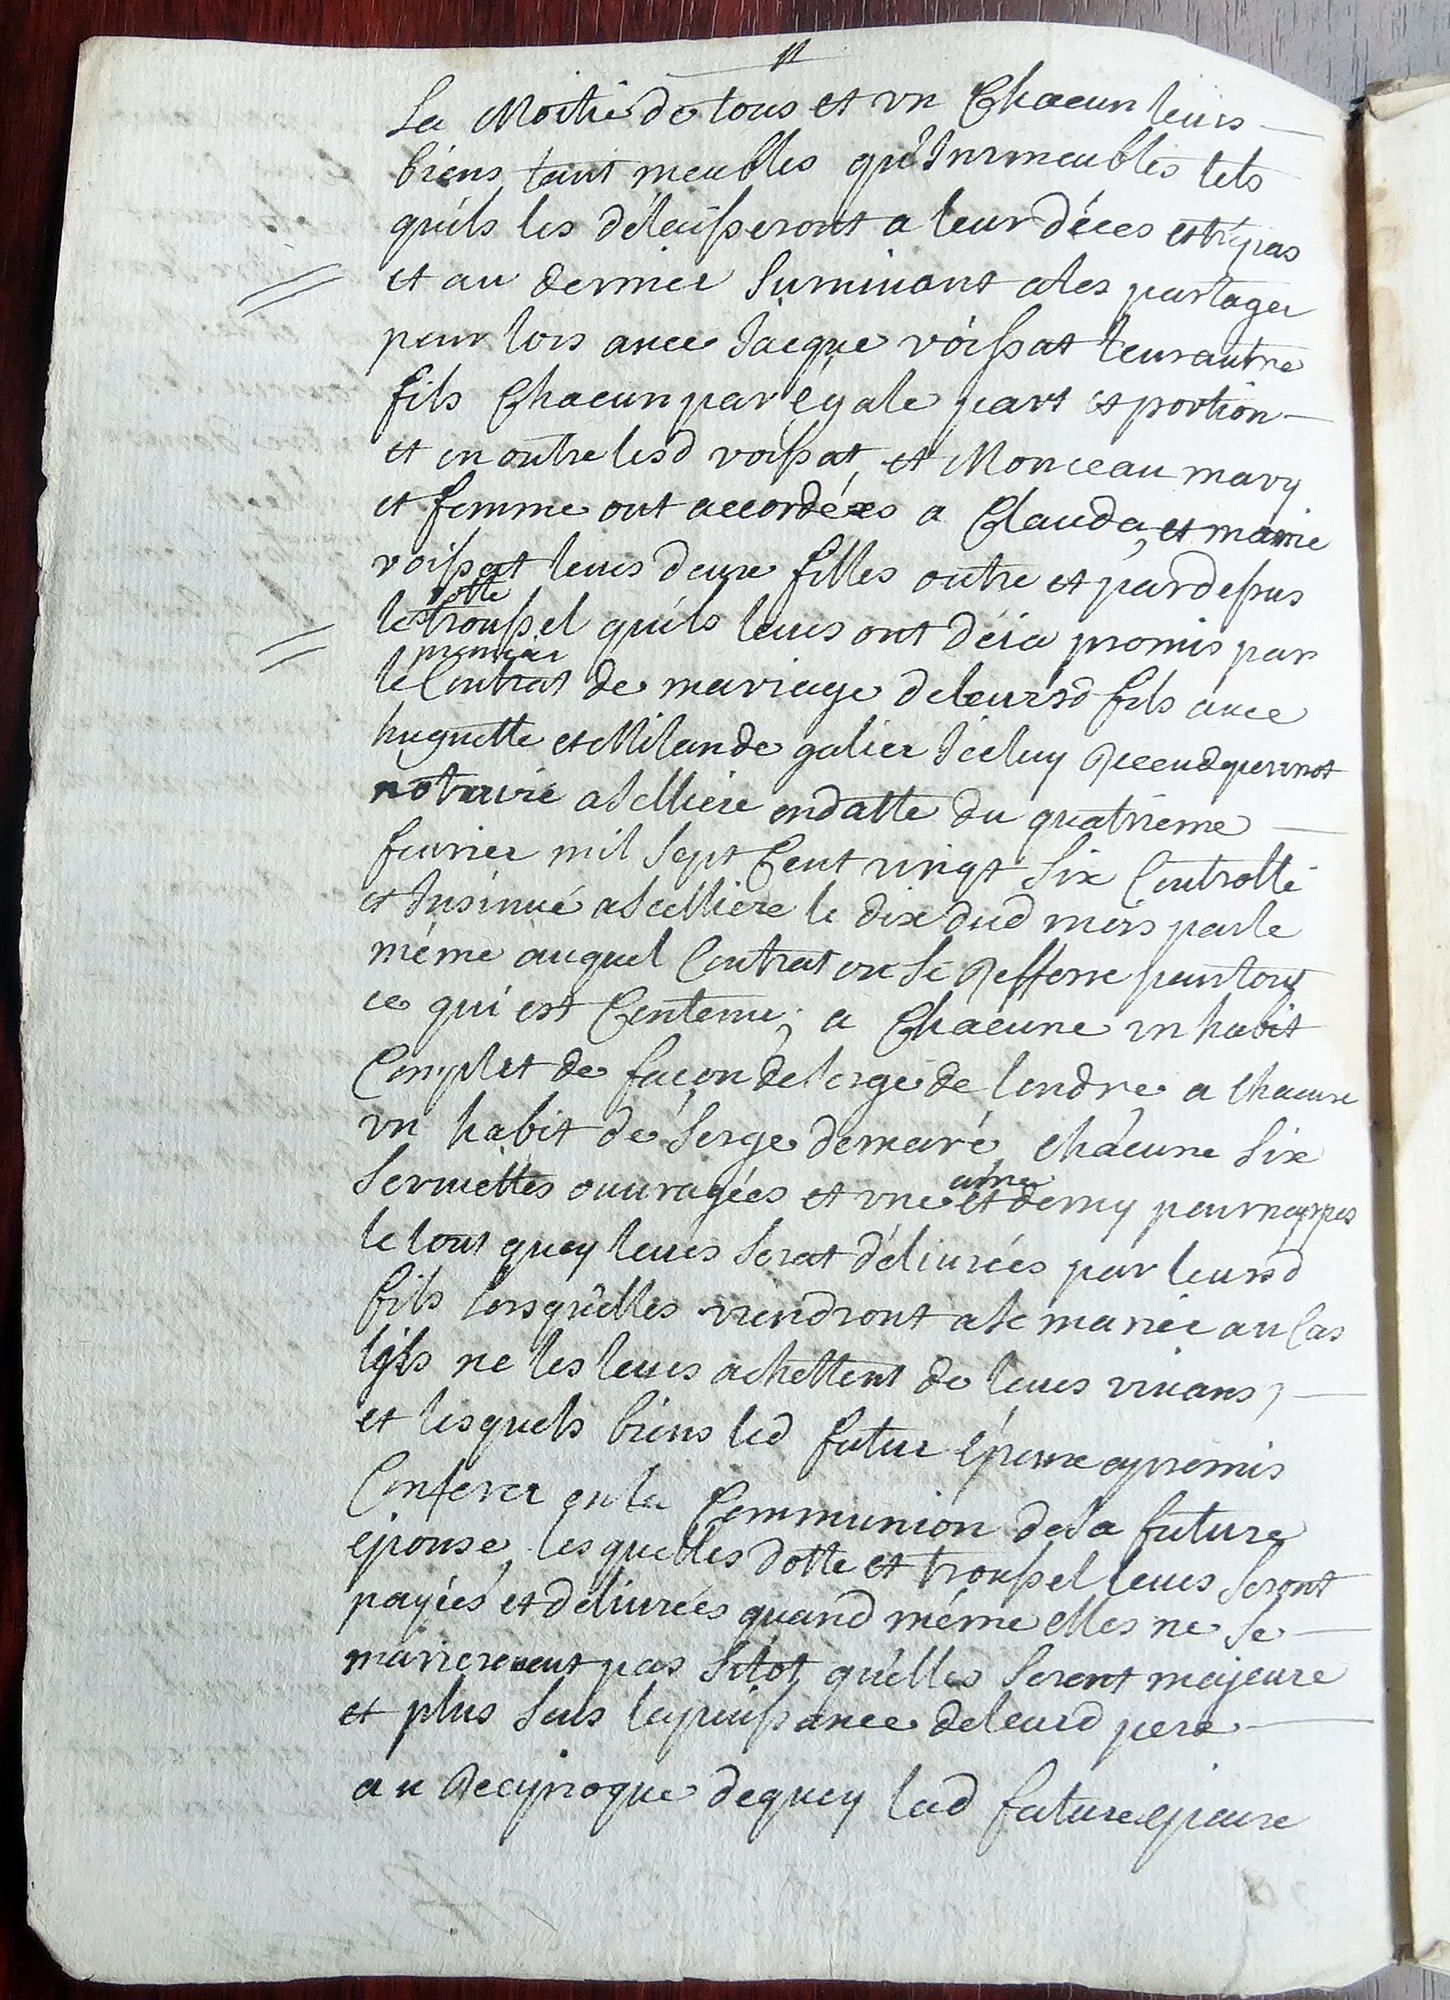 La Moitié de tous et un Chacun leurs
biens tant meubles qu'Inmeubles tels
quils les délaisseront a leur décés et trépas
et au dernier Surviuant ales partager
pour lors avec Jacque voissat leur autre
fils Chacun par égale part et portion
et en outre lesd voissat et Monceau mary
et femme ont accordées a Clauda, et marie
voissat leurs deux filles outre et pardessus
dotte
les troussel quils leurs ont déia promis par
premier
le Contrat de mariage de leursd fils avec
huguette etMilande galier Iceluy Receud
notaire aSelliere endatte du quatrieme
feurier mil Sept Cent vingt Six Controllé
et Insinué aSelliere le dix dud mois par le
même auquel Contrat on Se Refferre pour tout
ce qui est Contenu; a Chacune un habit
Complet de façon deserge de londre a Chacune
un habit de Serge demaré, Chacune Six
aûne
Seruiettes ouuragées et une et demy pour nappes
le tout quoy leurs Serat déliurées par leursd
fils lorsquelles viendront aSe marier au Cas
qils ne les leurs achettent de leurs viuans,
et lesquels biens led futur époux a promis
Conferer en la Communion de Sa future
épouse, lesquelles dotte et troussel leurs Seront
payées et deliurées quand même elles ne Se
marieroient pas Sitot quelles Seront majeure
et plus Sous la puissance de leurd pere
au Reciproque dequoy lad future épouse